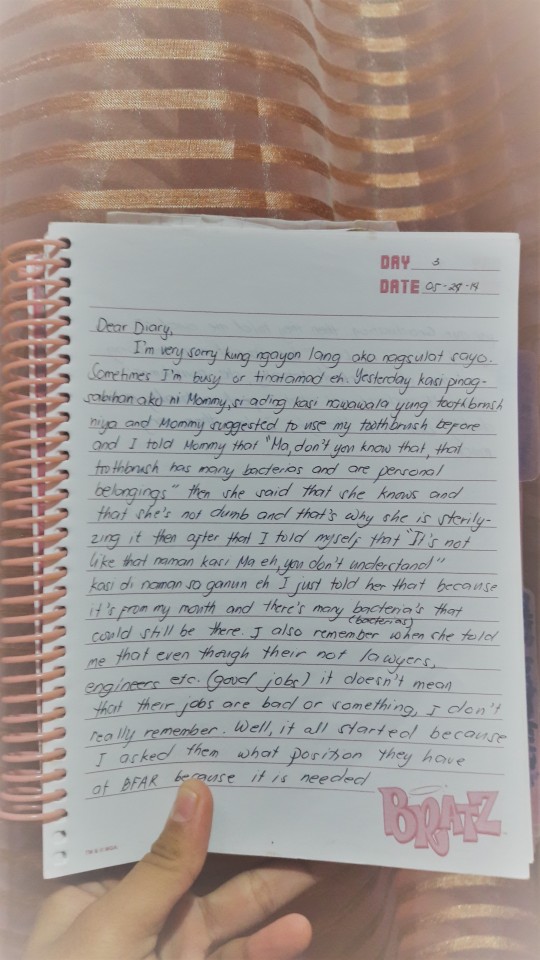 DAY 3
DATE 05-28-19
Dear Diary,
I'm very sorry kung ngayon lang ako nagsulat sayo.
Sometimes I'm busy or tinatamad eh. Yesterday kasi pinag-
sabihan ako ni Mommy, si ading kasi nawawala yung toothbrush
niya and Mommy suggested to use my toothbrush before
and I told Mommy that "Ma, don't you know that, that
trothbrush has many bacterias and are personal
belongings" then she said that she knows and
that she's not dumb and that's why she is sterily-
zing it then after that I told myself that "It's not
like that naman kasi Ma eh, you don't understand"
kasi di naman sa ganun eh I just told her that because
it's from my mouth and there's many bacteria's that
(bacterias)
could still be there. I also remember when she told
me that even though their not lawyers,
engineers etc. (good jobs) it doesn't mean
that their jobs are bad or something, I don't
really remember. Well, it all started because
I asked them what position they have
at BFAR because it is needed
BRATZ